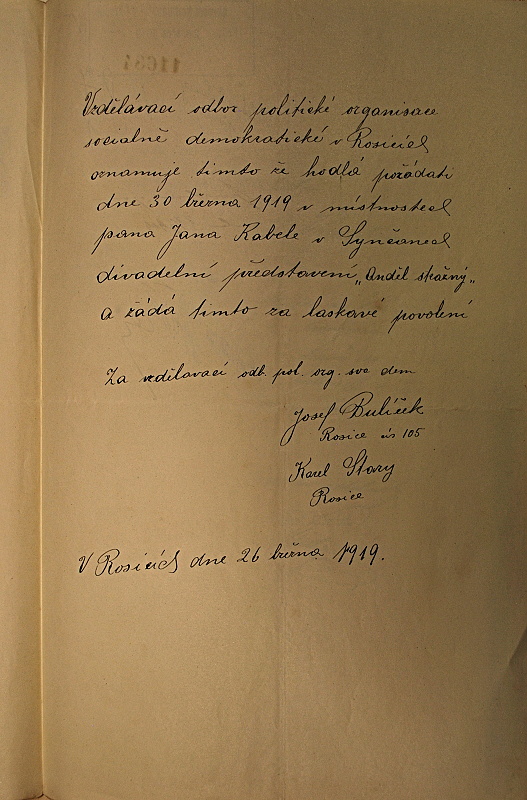 Vzdělávací odbor politické organisace
socialně demokratické v Rosicích
oznamuje timto že hodlá pořádati
dne 30 března 1919 v místnostech
pana Jana Kabele v Synčanech
divadelní představení „Anděl strážný„
a žádá timto za laskavé povolení
Za vzdělavací odb. pol. org. soc dem
Josef Bulíček
Rosice čís 105
Karel Stary
Rosice
V Rosicích dne 26 března 1919.